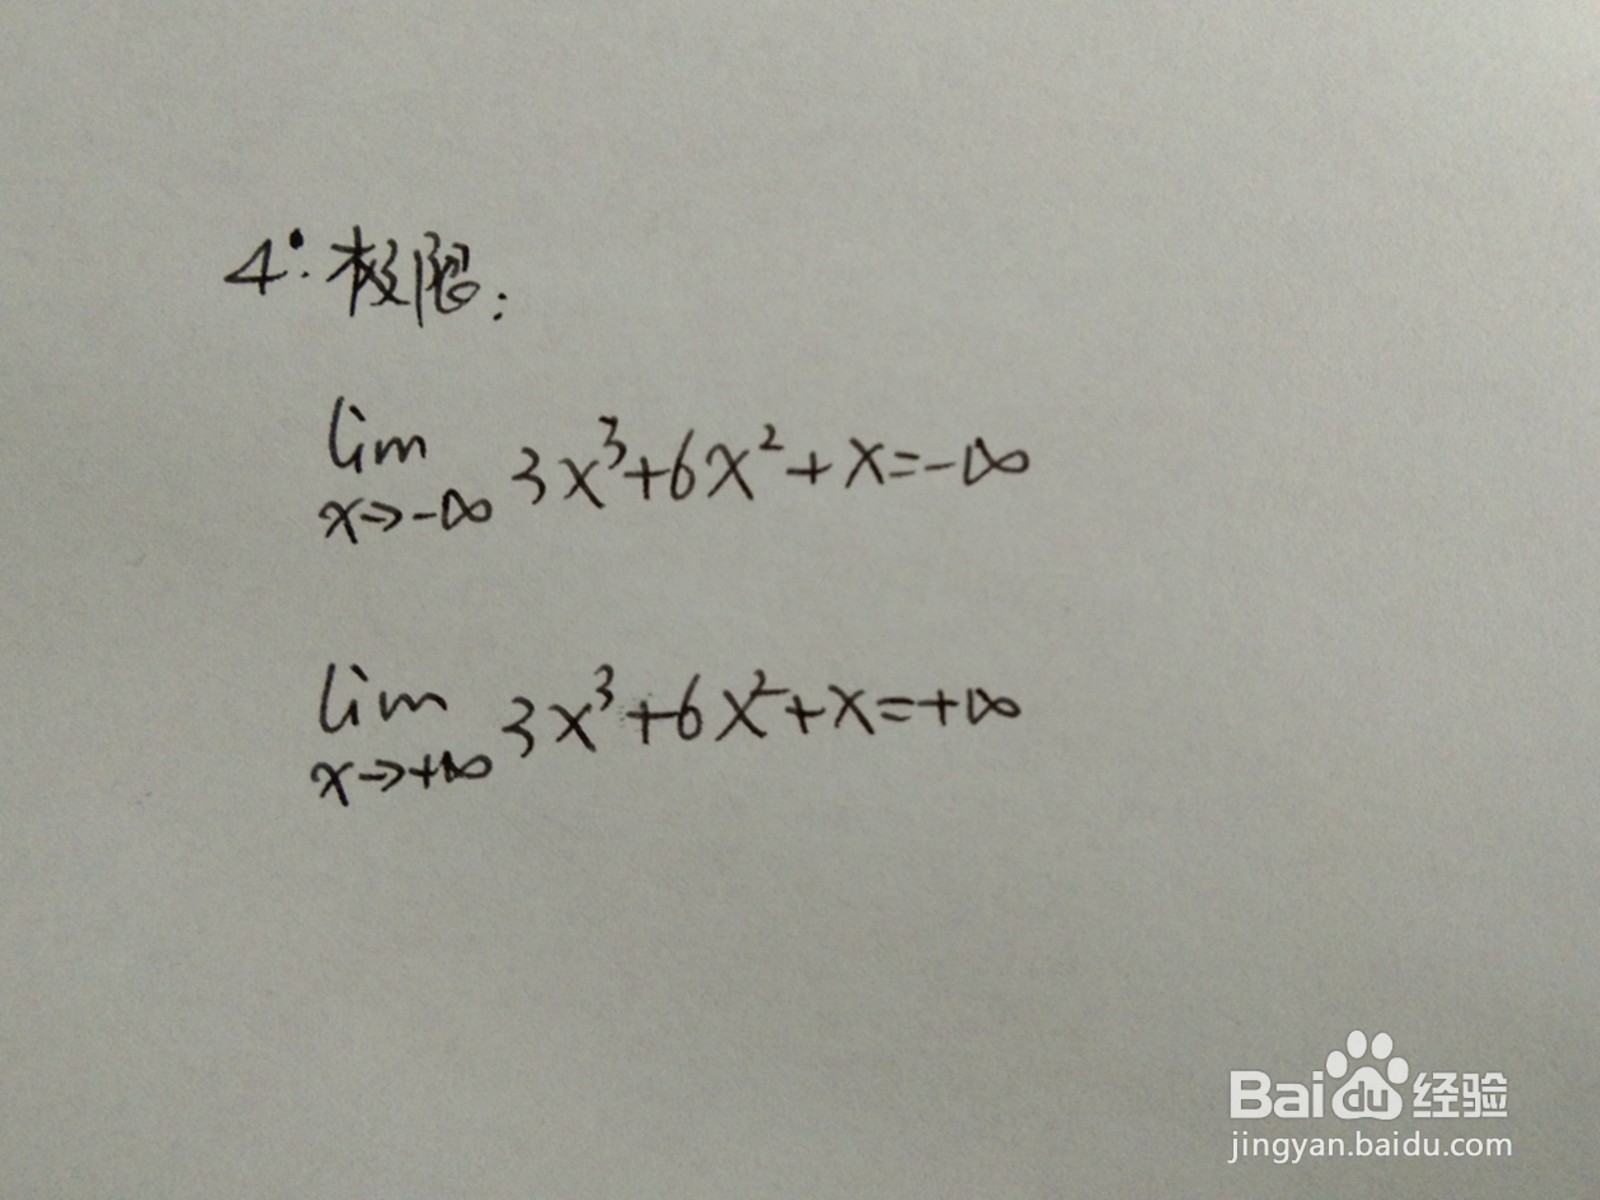 4°:极限:
lim 3x³+6x²+x=-∞
x→-∞
lim 3x³+6x²+x=+∞
x→+∞
Bai du 经验
jingyan.baidu.com